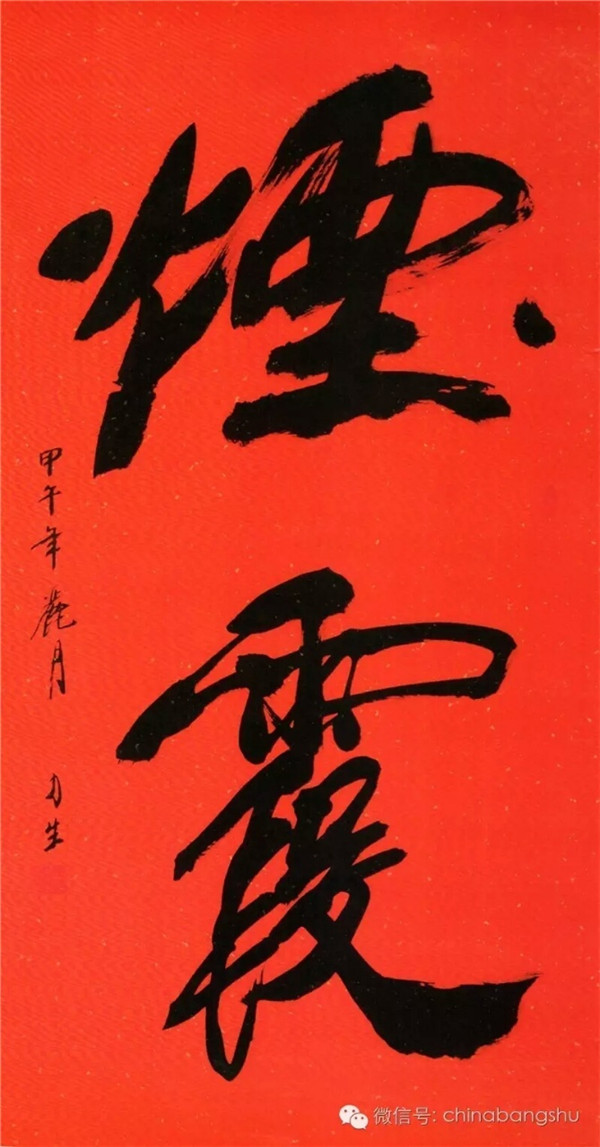 煙霞
甲午年 月
生
微信号: chinabangshu